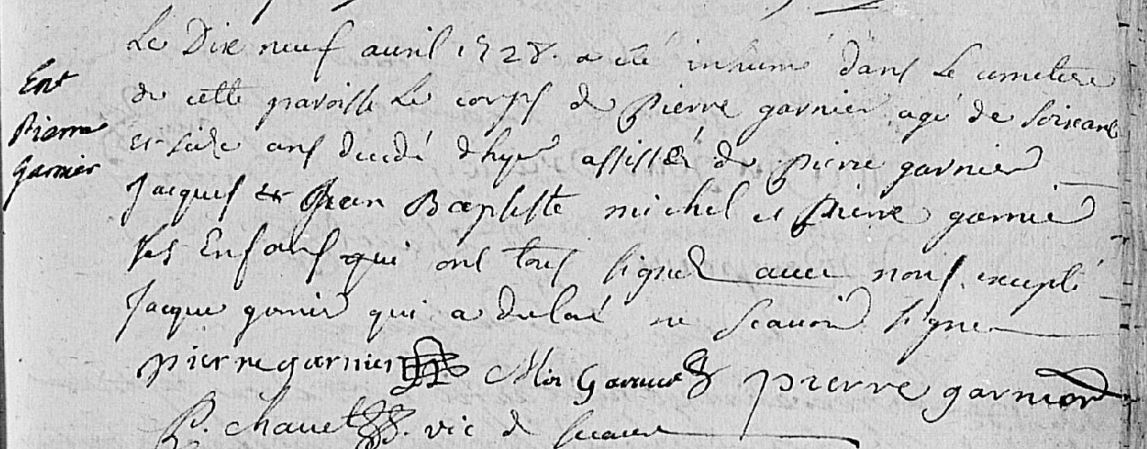 Le Dix neuf auril 1728. a été inhumé dans Le cimetiere
Ent
Pierre
Garnier
de cette paroisse Le corps de Pierre garnier agé de soixante
et seize ans decedé d'hyer assisté de pierre garnier
Jacques et Jean Baptiste michel et pierre garnier
ses Enfans qui ont tous signez auec nous excepté
Jacque garnier qui a declaré ne scauoir signer
pierre garnier Mic Garnier pierre garnier
P. chauet vic de